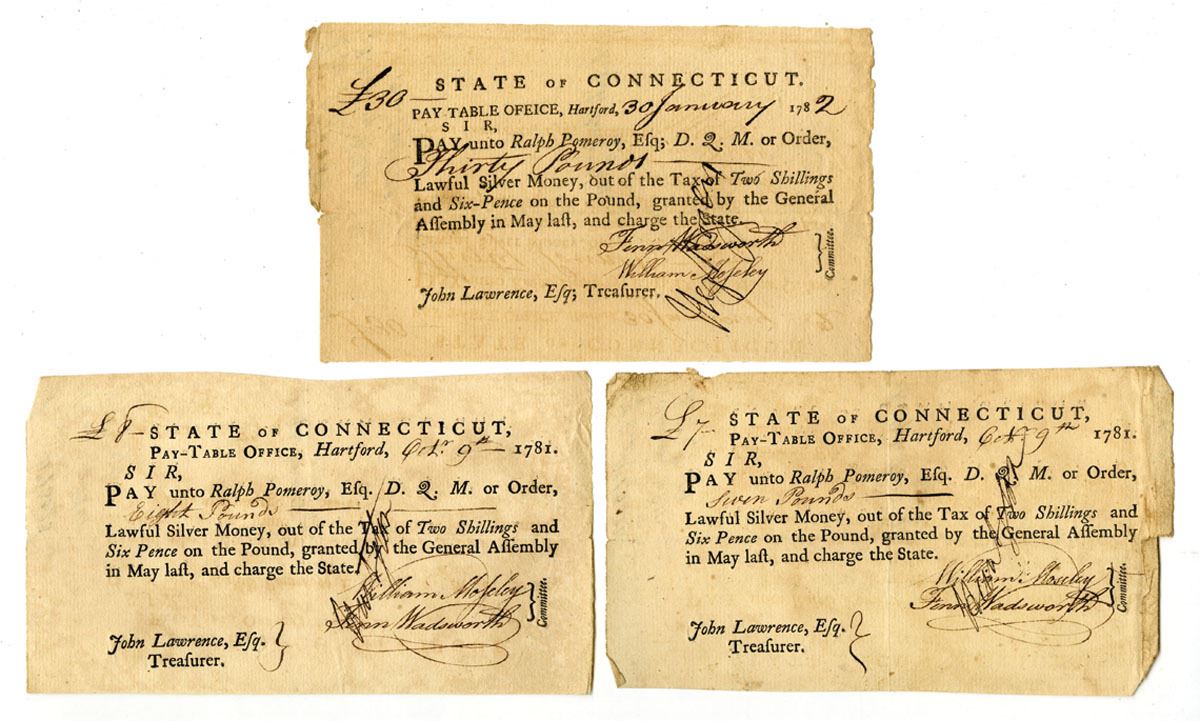 STATE OF CONNECTICUT.
£30
PAY TABLE OFEICE, Hartford, 30 January 1782
SIR,
PAY unto Ralph Pomeroy, Esq; D. Q. M. or Order,
Thirty Pounds
Lawful Silver Money, out of the Tax of Two Shillings
and Six-Pence on the Pound, granted by the General
Aſſembly in May laſt, and charge the State.
Fenn Wadsworth
William Moseley
Committee.
John Lawrence, Eſq; Treaſurer.
£8 STATE OF CONNECTICUT,
PAY-TABLE OFFICE, Hartford, Octr. 9th 1781.
SIR,
PAY unto Ralph Pomeroy, Esq. D. Q. M. or Order,
Eight Pounds
Lawful Silver Money, out of the Tax of Two Shillings and
Six Pence on the Pound, granted by the General Aſſembly
in May laſt, and charge the State.
William Moseley
Fenn Wadsworth
Committee.
John Lawrence, Eſq.
Treaſurer.
£7 STATE OF CONNECTICUT,
PAY-TABLE OFFICE, Hartford, Octr. 9th 1781.
SIR,
PAY unto Ralph Pomeroy, Esq. D. Q. M. or Order,
Seven Pounds
Lawful Silver Money, out of the Tax of Two Shillings and
Six Pence on the Pound, granted by the General Aſſembly
in May laſt, and charge the State.
William Moseley
Fenn Wadsworth
Committee.
John Lawrence, Eſq.
Treaſurer.